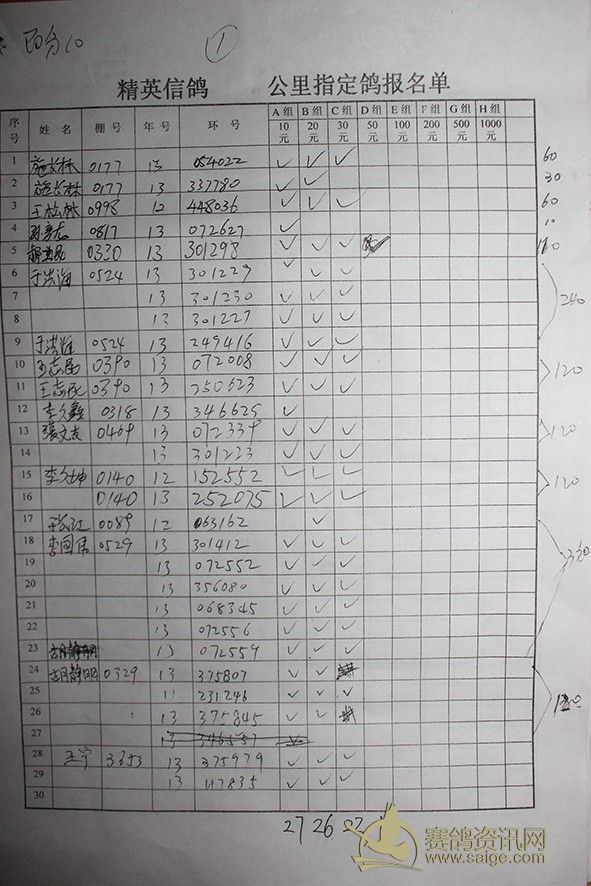 百分10 ①
精英信鸽 公里指定鸽报名单
序号 姓名 棚号 年号 环号 A组10元 B组20元 C组30元 D组50元 E组100元 F组200元 G组500元 H组1000元
1 施长林 0177 13 054022 ✓ ✓ ✓ 60
2 施长林 0177 13 337780 ✓ ✓ 30
3 王松林 0998 12 448036 ✓ ✓ ✓ 60
4 0817 13 072627 ✓ 10
5 0330 13 301298 ✓ ✓ ✓ ✓
6 于洪海 0524 13 301229 ✓ ✓ ✓
7 13 301230 ✓ ✓ ✓ 240
8 13 301227 ✓ ✓ ✓
9 于洪海 0524 13 249416 ✓ ✓ ✓
10 王志民 0390 13 072008 ✓ ✓ ✓ 120
11 王志民 0390 13 250623 ✓ ✓ ✓
12 李久鑫 0318 13 346625 ✓
13 張文友 0469 13 072339 ✓ ✓ ✓ 120
14 13 301223 ✓ ✓ ✓
15 李久坤 0140 12 152552 ✓ ✓ ✓ 120
16 0140 13 252075 ✓ ✓ ✓
17 于长江 0089 12 063162 ✓
18 李国伟 0529 13 301412 ✓ ✓ ✓
19 13 072552 ✓ ✓ ✓
20 13 356080 ✓ ✓ ✓
21 13 068345 ✓ ✓ ✓
22 13 072556 ✓ ✓ ✓
23 13 072559 ✓ ✓ ✓
24 胡静明 0329 13 375807 ✓ ✓
25 11 231246 ✓ ✓ ✓
26 13 375845 ✓ ✓
27 13 346557
28 王宁 3353 13 375979 ✓ ✓ ✓
29 13 117835 ✓ ✓ ✓
30
27 26 22 1
赛鸽资讯网
www.saige.com